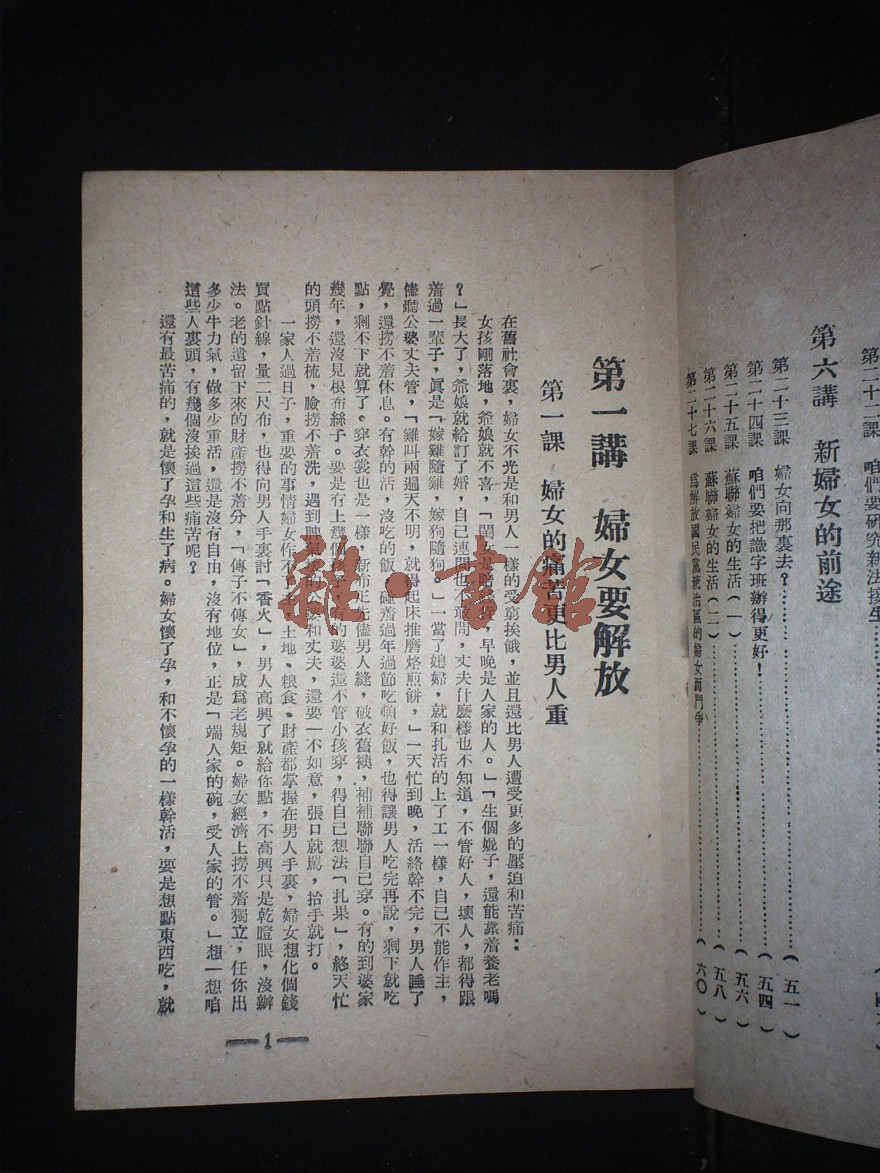 第二十二課 咱們要研究新法接生
第六講 新婦女的前途
第二十三課 婦女向那裏去?(五一)
第二十四課 咱們要把識字班辦得更好!(五四)
第二十五課 蘇聯婦女的生活(一)(五六)
第二十六課 蘇聯婦女的生活(二)(五八)
第二十七課 爲解放國民黨統治區的婦女而鬥爭(六〇)
第一講 婦女要解放
第一課 婦女的痛苦更比男人重
在舊社會裏,婦女不光是和男人一樣的受窮挨餓,並且還比男人遭受更多的壓迫和苦痛:
女孩剛落地,爺娘就不喜,「閨女是賠錢貨,早晚是人家的人。」「生個妮子,還能靠着養老嗎
?」長大了,爺娘就給訂了婚,自己連問也不敢問,丈夫什麼樣也不知道,不管好人,壞人,都得跟
着過一輩子,眞是「嫁雞隨雞,嫁狗隨狗。」一當了媳婦,就和扎活的上了工一樣,自己不能作主,
儘聽公婆丈夫管,「雞叫兩遍天不明,就得起床推磨烙煎餅,」一天忙到晚,活絡幹不完,男人睡了
覺,還撈不着休息。有幹的活,沒吃的飯,碰着過年過節吃頓好飯,也得讓男人吃完再說,剩下就吃
點,剩不下就算了。穿衣裳也是一樣,新布疋先儘男人縫,破衣舊襖,補補聯聯自己穿。有的到婆家
幾年,還沒見根布絲子。要是有上幾個孩子,有的婆婆還不管小孩穿,得自己想法「扎裹」,終天忙
的頭撈不着梳,臉撈不着洗,遇到公婆和丈夫,還要一不如意,張口就罵,抬手就打。
一家人過日子,重要的事情婦女作不了主,土地、粮食、財產都掌握在男人手裏,婦女想化個錢
買點針線,量二尺布,也得向男人手裏討「香火」,男人高興了就給你點,不高興只是乾瞪眼,沒辦
法。老的遺留下來的財產撈不着分,「傳子不傳女」,成爲老規矩。婦女經濟上撈不着獨立,任你出
多少牛力氣,做多少重活,還是沒有自由,沒有地位,正是「端人家的碗,受人家的管。」想一想咱
這些人裏頭,有幾個沒挨過這些痛苦呢?
還有最苦痛的,就是懷了孕和生了病。婦女懷了孕,和不懷孕的一樣幹活,要是想點東西吃,就
1
雜·書館